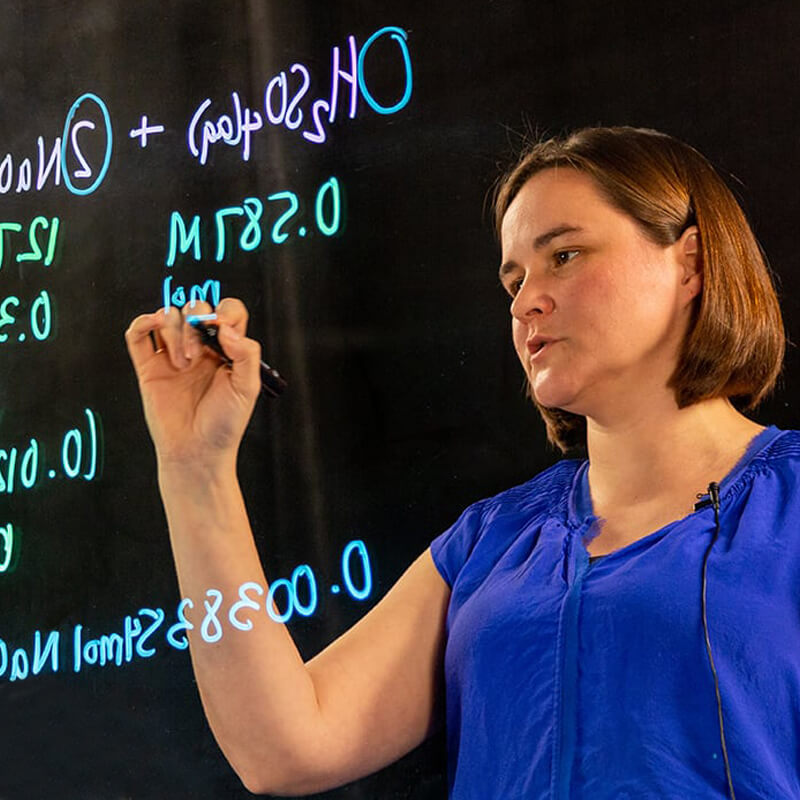 H₂SO₄(aq) + 2NaO
0.587 M 12.7
mol 0.3
(0.012
0.0038354mol NaO